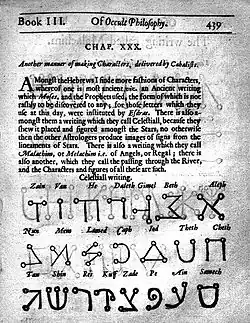 Book III. Of Occult Philosophy. 439
CHAP. XXX.
Another manner of making Characters, delivered by Cabalists.
AMongst the Hebrews I finde more fashions of Characters,
whereof one is most ancient, viz. an Ancient writing
which Moses, and the Prophets used, the form of which is not
rashly to be discovered to any, for those letters which they
use at this day, were instituted by Esdras. There is also a-
mongst them a writing which they call Celestiall, because they
shew it placed and figured amongst the Stars, no otherwise
then the other Astrologers produce images of signs from the
lineaments of Stars. There is also a writing which they call
Malachim, or Melachim i.e. of Angels, or Regal; there is
also another, which they call the passing through the River,
and the Characters and figures of all these are such.
Celestiall writing.
Zain Vau He Daleth Gimel Beth Aleph
Nun Mem Lamed Caph Iod Theth Cheth
Tau Shin Res Kuff Zade Pe Ain Samech